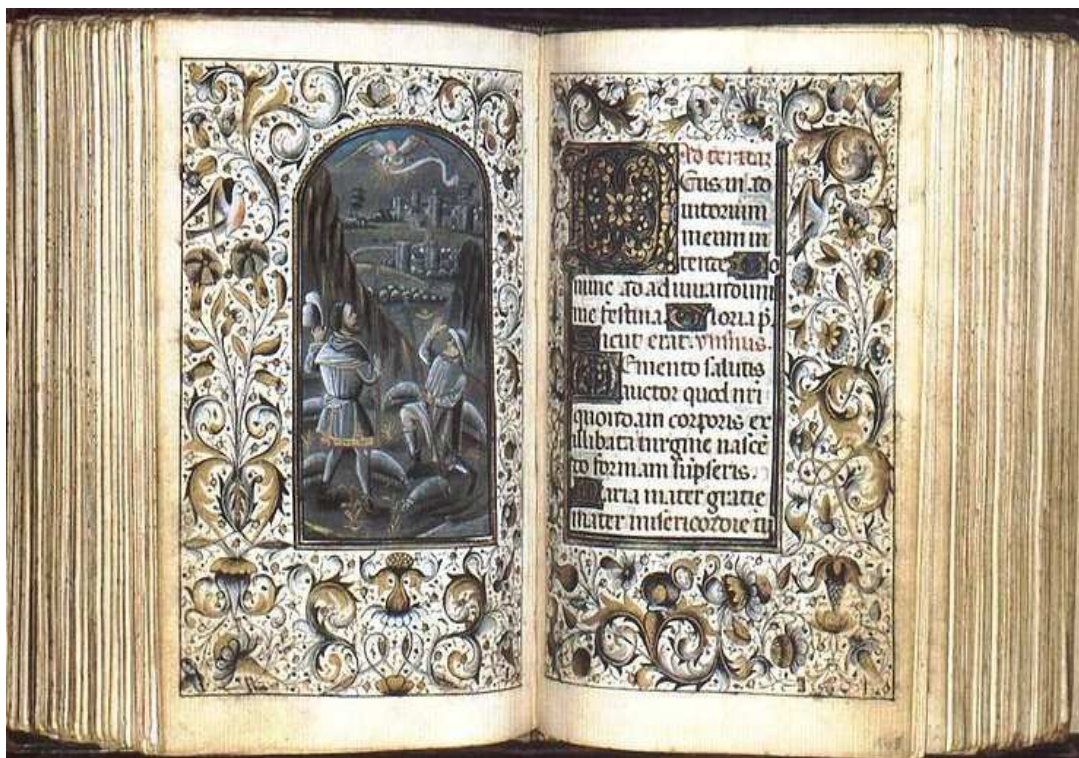 Ad terciam
Deus in ad
iutorium
meum in
tende Do
mine ad adiuuandum
me festina Gloria p̄.
Sicut erat. ympnus.
Memento salutis
auctor quod nr̄i
quondam corporis ex
illibata uirgine nascē
do formam sūpseris.
Maria mater gratie
mater misericordie tu